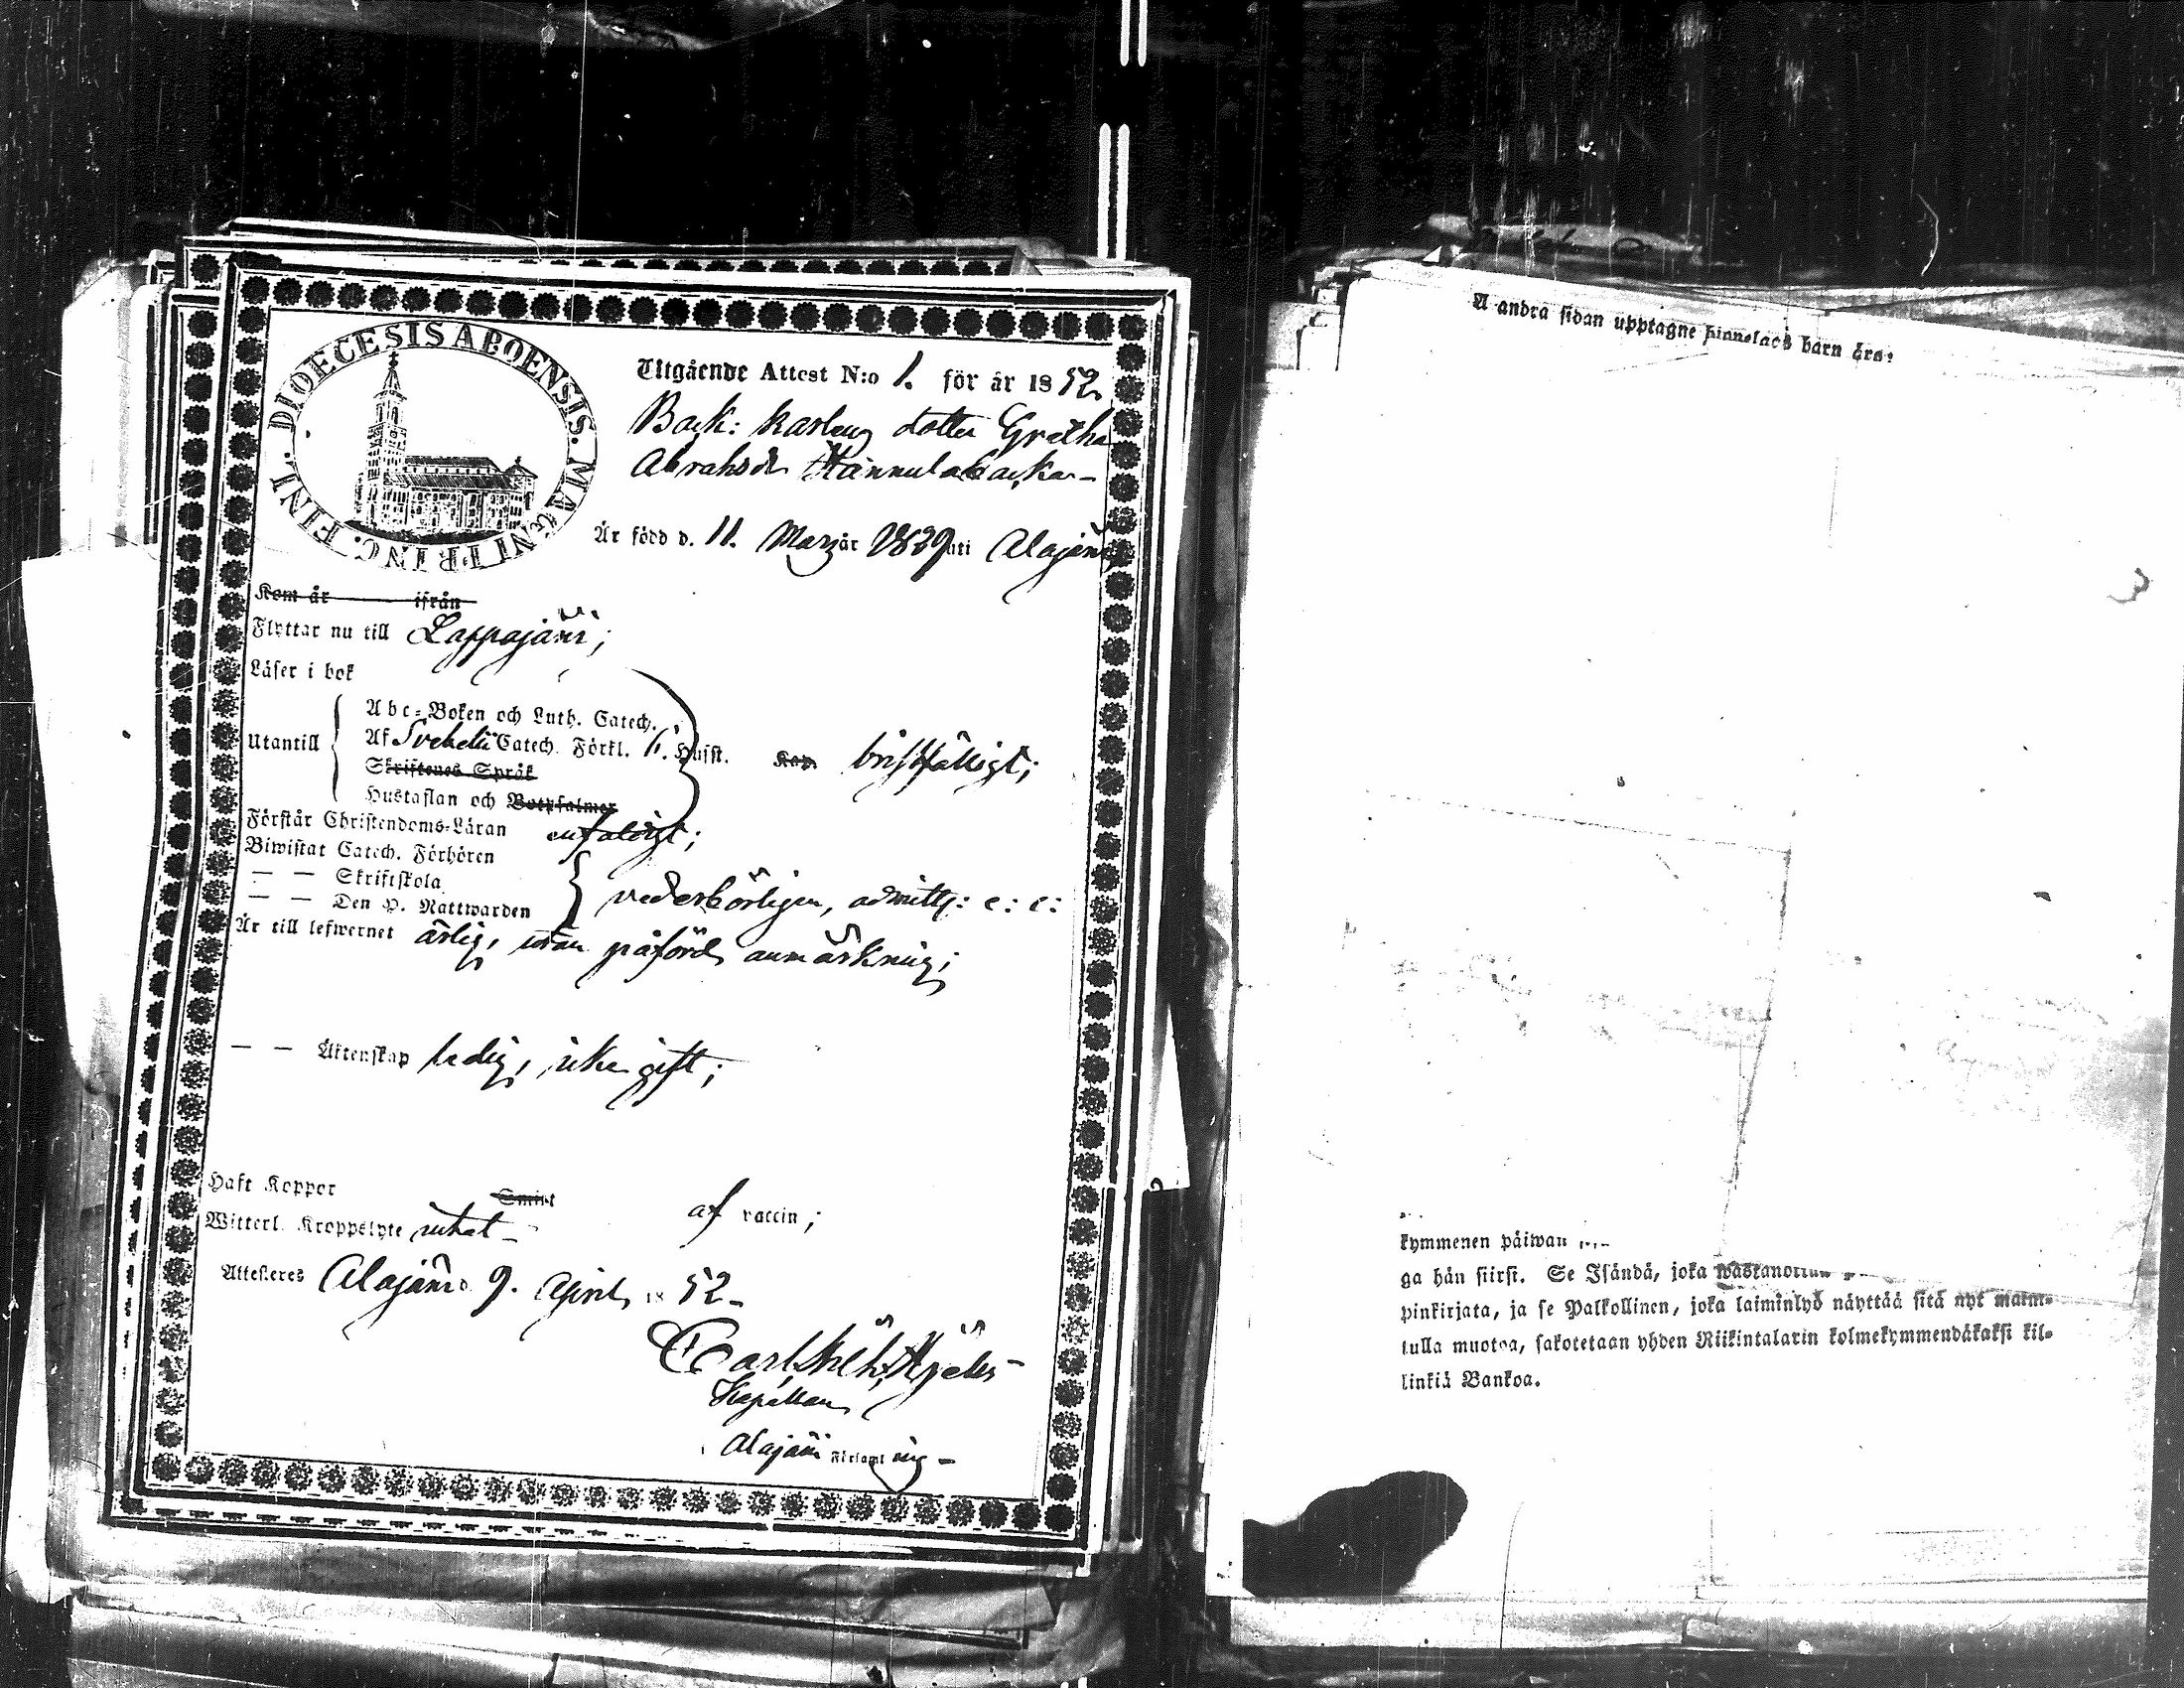 DIOECESIS ABOENSIS. MAGNI PRINC. FINL.
Utgående Attest N:o 1. för år 1852
Back: karlens dotter Gretha
Abrahsdr Hannulabacka-
Är född d. 11. Mars år 1829 uti Alajärvi
Kom år ifrån
Flyttar nu till Lappajärvi;
Läser i bok
Utantill
Abc-Boken och Luth. Catech.
Af Svebelii Catech. Förkl. 6. Hufst. Kap. bristfälligt;
Skriftenes Språk
Hustaflan och Botpsalmer
Förstår Christendoms-Läran enfaldigt;
Biwistat Catech. Förhören
— — Skriftskola
— — Den H. Nattwarden vederbörligen, admitt: e: c:
Är till lefwernet ärlig, utan påförd anmärkning;
— — Äktenskap ledig, icke gift;
Haft Koppor Smitt af vaccin;
Witterl. Kroppslyte intet -
Attesteres Alajärvi d. 9. April 1852-
Carl
Kapellan
Alajärvi Församling -
Å andra sidan upptagne hinnelags barn äro:
kymmenen päiwän
ga hän siirst. Se Isändä, joka
pinkirjata, ja se Palkollinen, joka laiminlyö näyttää sitä nyt maini-
tulla muotoa, sakotetaan yhden Riikintalarin kolmekymmendäkaksi kil-
linkiä Bankoa.